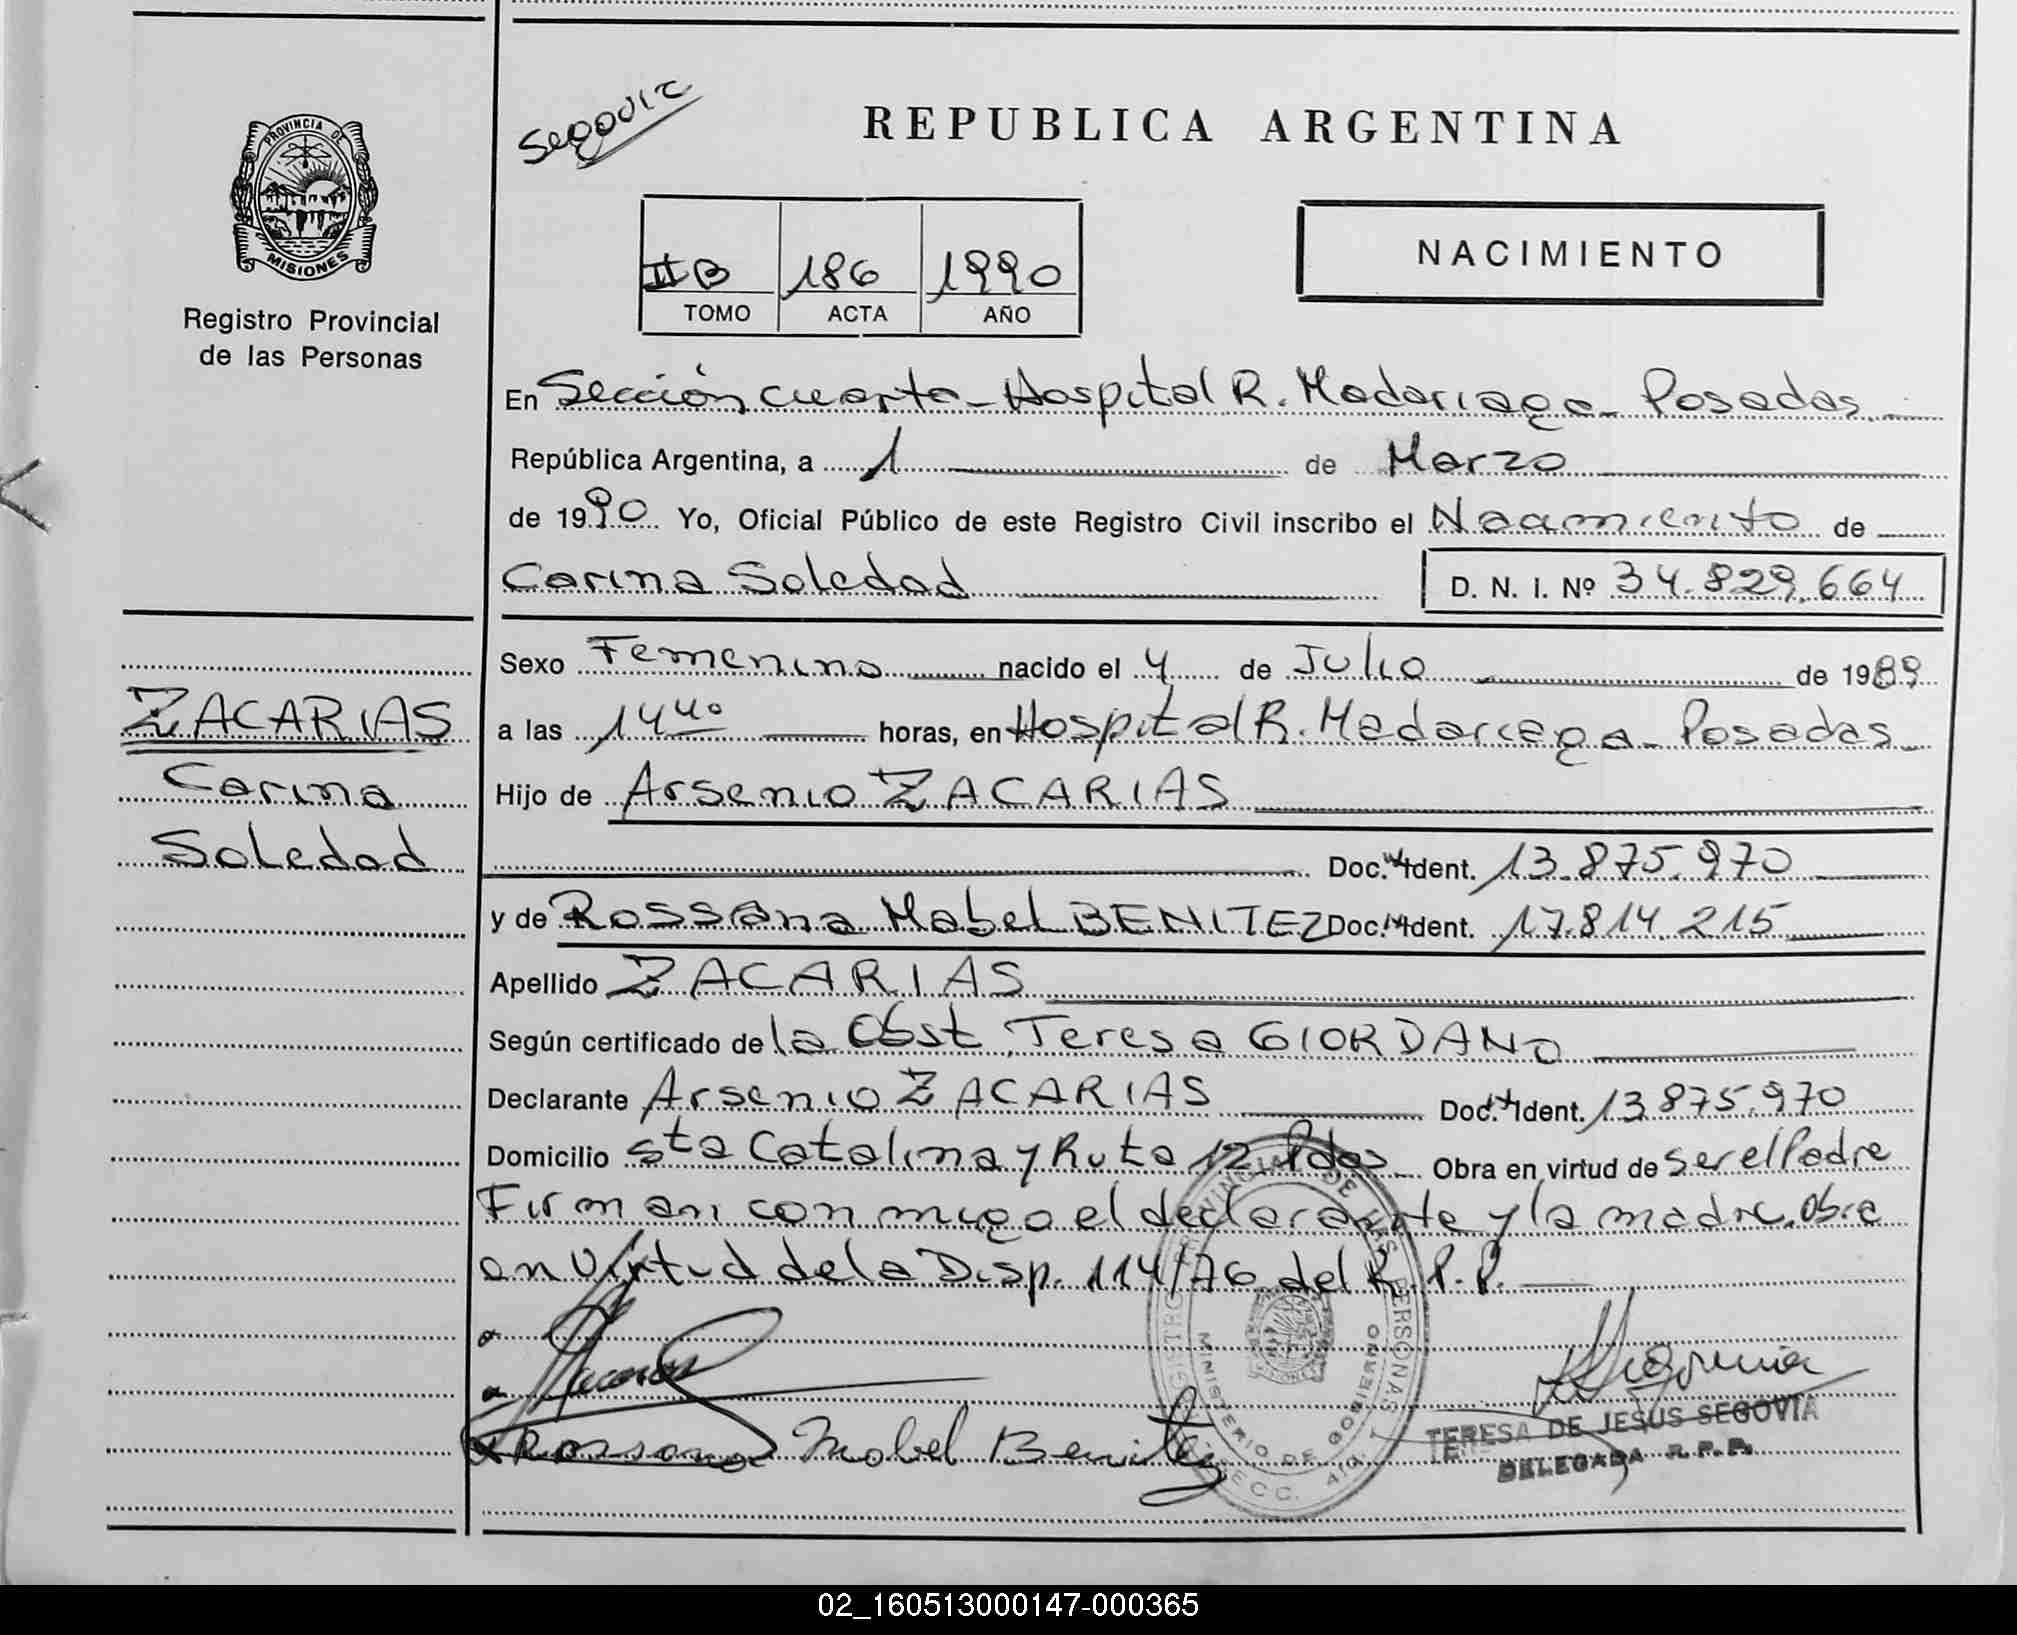 Segovia
REPUBLICA ARGENTINA
PROVINCIA DE
MISIONES
Registro Provincial
de las Personas
II B 186 1990
TOMO ACTA AÑO
NACIMIENTO
En Sección cuarta - Hospital R. Madariaga - Posadas
República Argentina, a 1 de Marzo
de 1990 Yo, Oficial Público de este Registro Civil inscribo el Nacimiento de
Carina Soledad D. N. I. Nº 34.829.664
Sexo Femenino nacido el 4 de Julio de 1989
ZACARIAS
Carina
Soledad
a las 14 40 horas, en Hospital R. Madariaga - Posadas
Hijo de Arsenio ZACARIAS
Doc. Ident. 13.875.970
y de Rossana Mabel BENITEZ Doc. Ident. 17.814.215
Apellido ZACARIAS
Según certificado de la Obst. Teresa GIORDANO
Declarante Arsenio ZACARIAS Doc. Ident. 13.875.970
Domicilio Sta Catalina y Ruta 12 Pdas Obra en virtud de ser el Padre
Firman conmigo el declarante y la madre. Obra
en Virtud de la Disp. 114/76 del R.P.P.
Rossana Mabel Benitez
MINISTERIO DE GOBIERNO
TERESA DE JESUS SEGOVIA
DELEGADA R.P.P.
02_160513000147-000365